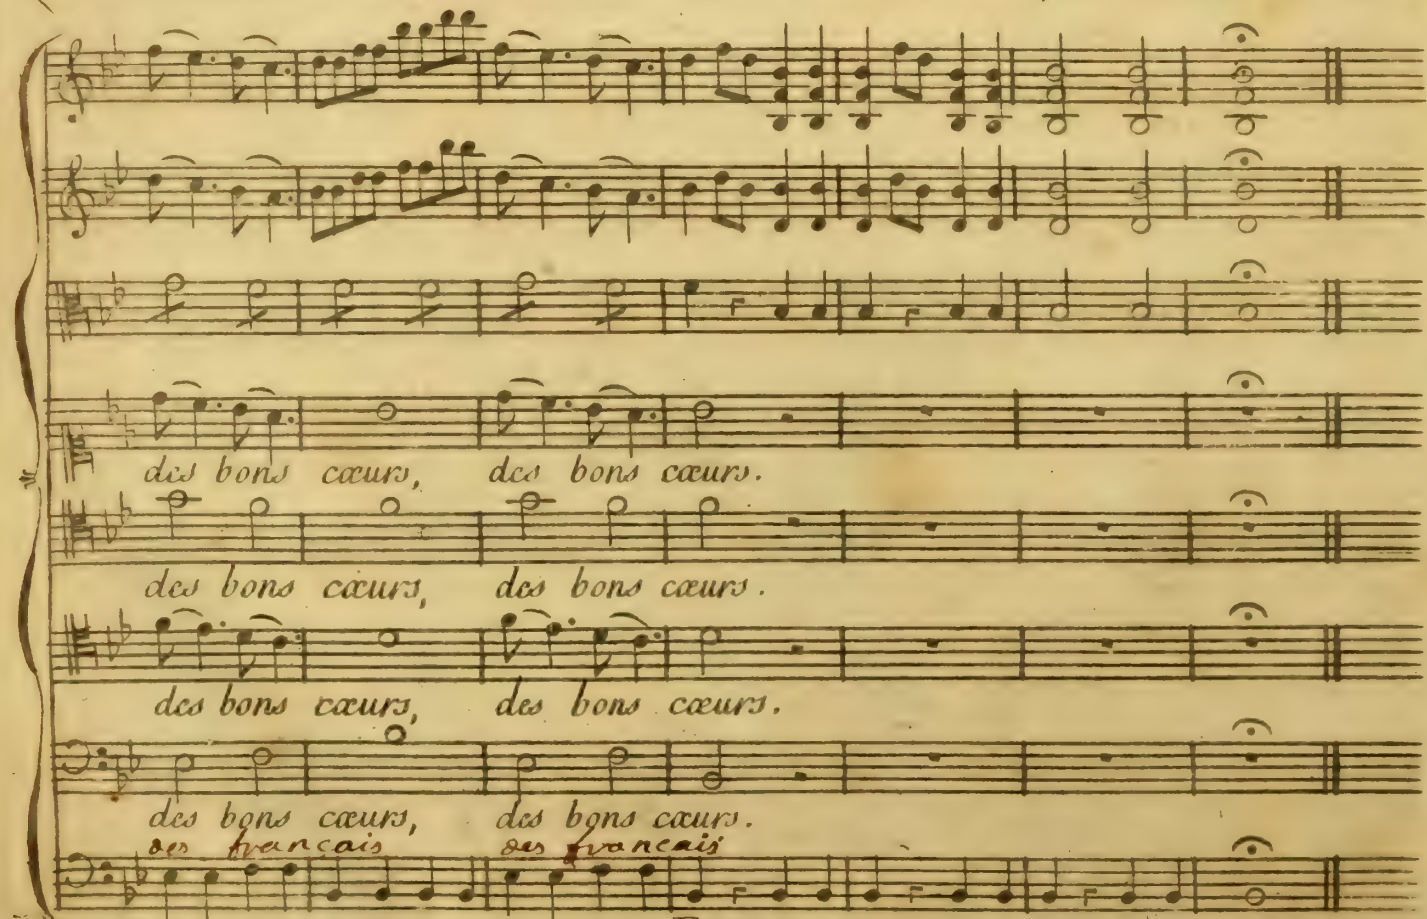 des bons cœurs, des bons cœurs.
des bons cœurs, des bons cœurs.
des bons cœurs, des bons cœurs.
des bons cœurs, des bons cœurs.
des francais des francais